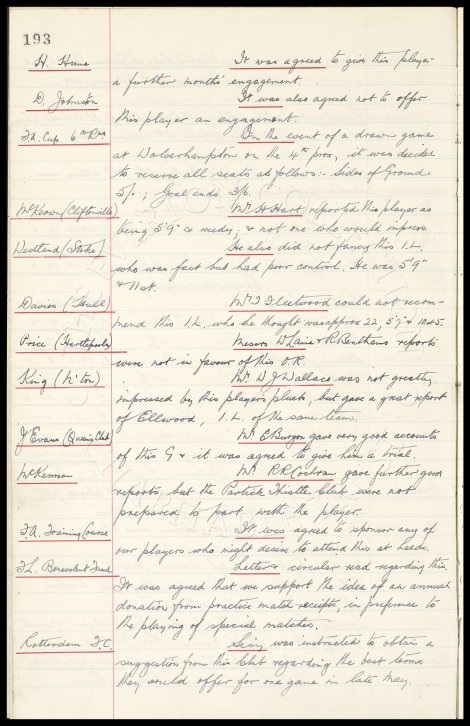 193
H. Hume It was agreed to give this player
a further months' engagement.
D. Johnston It was also agreed not to offer
this player an engagement.
F.A. Cup 6th Rd. In the event of a drawn game
at Wolverhampton on the 4th prox, it was decided
to reserve all seats as follows:- Sides of Ground
5/-; Goal ends 3/6.
McKeown (Cliftonville) Mr. H Hart reported this player as
being 5'9" & weedy, & not one who would improve.
Westland (Stoke) He also did not fancy this I.L.
who was fast but had poor control. He was 5'9"
& 11st.
Davies (Hull) Mr J Fleetwood could not recom-
mend this I.L. who he thought was approx 22, 5'7" & 10st 5.
Price (Hartlepools) Messrs W Laine & R Benthams reports
were not in favour of this O.R.
King (N'ton) Mr. W J Wallace was not greatly
impressed by this players pluck, but gave a great report
of Ellwood, I.L. of the same team.
J Evans (Queens Club) Mr. E Burgon gave very good accounts
of this G & it was agreed to give him a trial.
McKennan Mr. R R Cochran gave further good
reports but the Partick Thistle Club were not
prepared to part with the player.
F.A. Training Course It was agreed to sponsor any of
our players who might desire to attend this at Leeds.
F.L. Benevolent Fund Letter & circular read regarding this.
It was agreed that we support the idea of an annual
donation from practice match receipts, in preference to
the playing of special matches.
Rotterdam F.C. Secy was instructed to obtain a
suggestion from this Club regarding the best terms
they could offer for one game in late May.